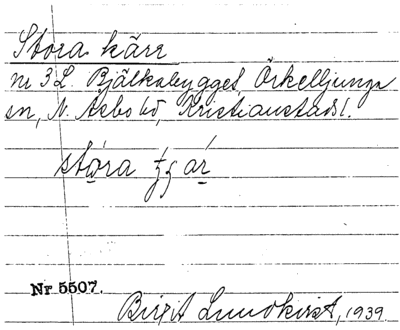 Stora kärr
nr 3 L. Bjälkabygget, Örkelljunga
sn, N. Åsbo hd, Kristianstads l.
stóra
Nr 5507.
Birgit Lundkvist, 1939.